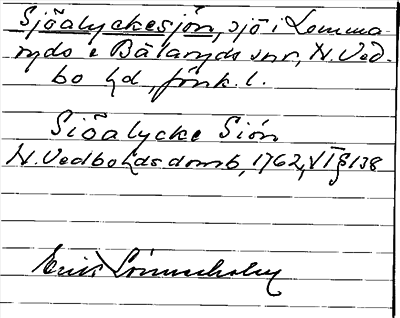 Sjöalyckesjön, sjö i Lomma-
ryds o Bälaryds snr, N. Ved-
bo hd, Jönk. l.
Siöalycke Siön
N. Vedbo hds domb, 1762, VI § 138
Erik